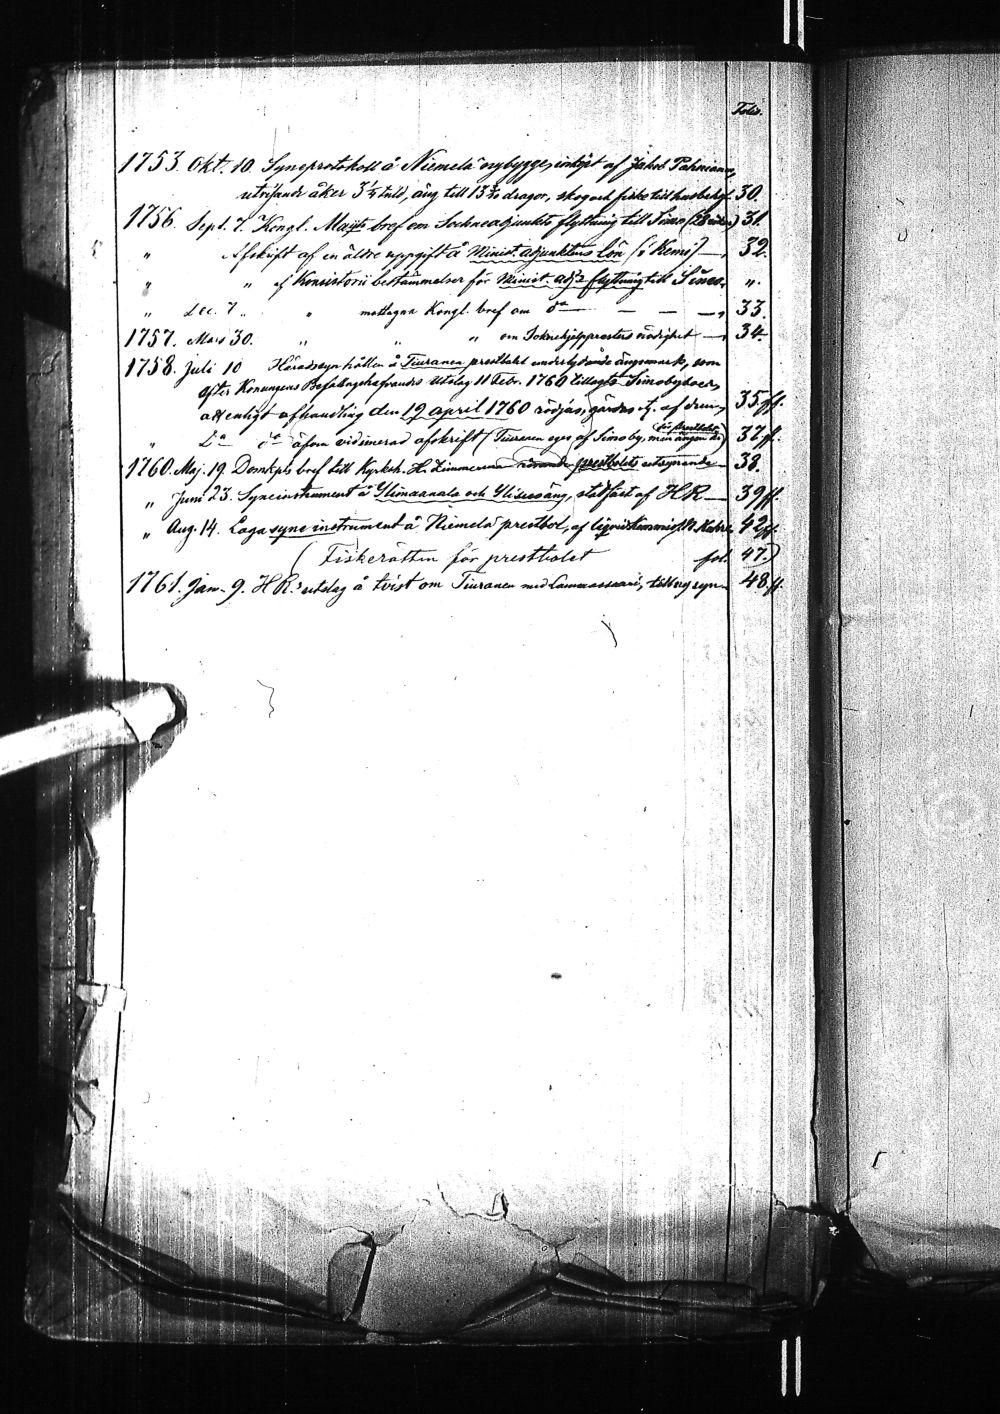 Folio.
1753. Okt. 10. Syneprotokoll å Niemelä nybygge, inköpt af Jakob Pahmann,
utvisande åker 3 1/4 tnld, äng till 13 dragor, skog och fiske till husbehof. 30.
1756. Sept. 7. Kongl. Maijts bref om Sockneadjunkts flyttning till Simo 31.
" Afskrift af en äldre uppgift å Minist. adjunktens lön (i Kemi) — 32.
" " af Konsistorii bestämmelser för Minist. adj:s flyttning till Simo, ".
" Dec. 7 " " mottagna Kongl. bref om do — — — 33.
1757. Mars 30. " " " om Soknehjelpprests nödighet — 34.
1758. Juli 10 Häradssyn hållen å Tiuranen prestbolet underlydande ängsmark, som
efter Konungens Befalningshafvandes Utslag 11 Febr. 1760 tillagts Simobyboer,
att enligt afhandling den 19 april 1760 rödjas, gärdas &. af dem, 35 ff.
" Do do äfven vidimerad afskrift (Tiuranen eges af Simoby, men ängen är för prestbolet) 37 f.
1760. Maj. 19. Domkpls bref till Kyrkoh. H. Zimmermann rörande prestbolets utsynande — 38.
" Juni 23. Syneinstrument å Ylimaanala och Ylisuoäng, stadfäst af H.R. — 39 ff.
" Aug. 14. Laga syneinstrument å Niemelä prestbol, af 42 ff.
( Fiskerätten för prestbolet fol. 47.)
1761. Jan. 9. H.R:s utslag å tvist om Tiuranen med Lammassaari, till ny syn — 48 ff.